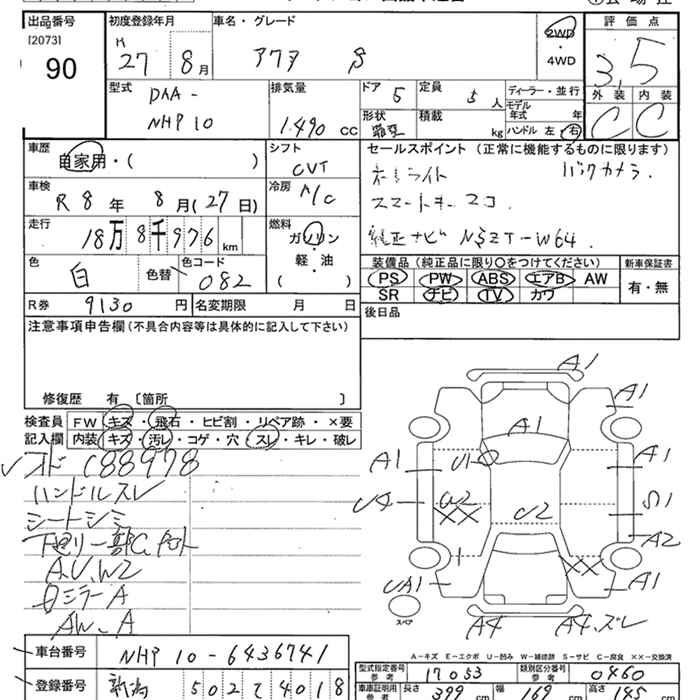 出品番号 初度登録年月 車名・グレード 評価点
[2073]
90
H 27 8月 アクア S
2WD
・
4WD
3.5
外装 内装
C C
型式 排気量 ドア 定員 ディーラー・並行
DAA-
NHP10 1.490 cc 5 5人
形状 積載 kg
モデル年式 年
ハンドル 左 右
車歴 シフト セールスポイント (正常に機能するものに限ります)
自家用・( ) CVT
車検 冷房
R8年 8月(27日) A/C
バックカメラ.
スマートキー 2コ.
純正ナビ NSZT-W64.
走行 燃料
18万8千976km ガソリン・軽・油 ( )
色 色替 色コード
白 082
装備品 (純正品に限り○をつけてください) 新車保証書
PS PW ABS エアB AW
SR ナビ TV カワ
有・無
R券 9130円 名変期限 月 日
後日品
注意事項申告欄 (不具合内容等は具体的に記入して下さい)
修復歴 有 〔箇所 〕
検査員記入欄
FW キズ・飛石・ヒビ割・リペア跡・×要
内装 キズ・汚レ・コゲ・穴・スレ・キレ・破レ
188978
ハンドルスレ
シートシミ
A.U.W2
AW-A
A1
A1
A1
A1 U1
U4 W2 XX U2 S1
A2
XX
UA1 A1
スペア
A4 A4.ズレ
A-キズ E-エクボ U-凹み W-補修跡 S-サビ C-腐食 ××-交換済
車台番号 NHP10-6436741
登録番号 新潟 502 て 4018
型式指定番号 参考 17053 類別区分番号 参考 0460
車庫証明用 参考 長さ 399cm 幅 169cm 高さ 145cm